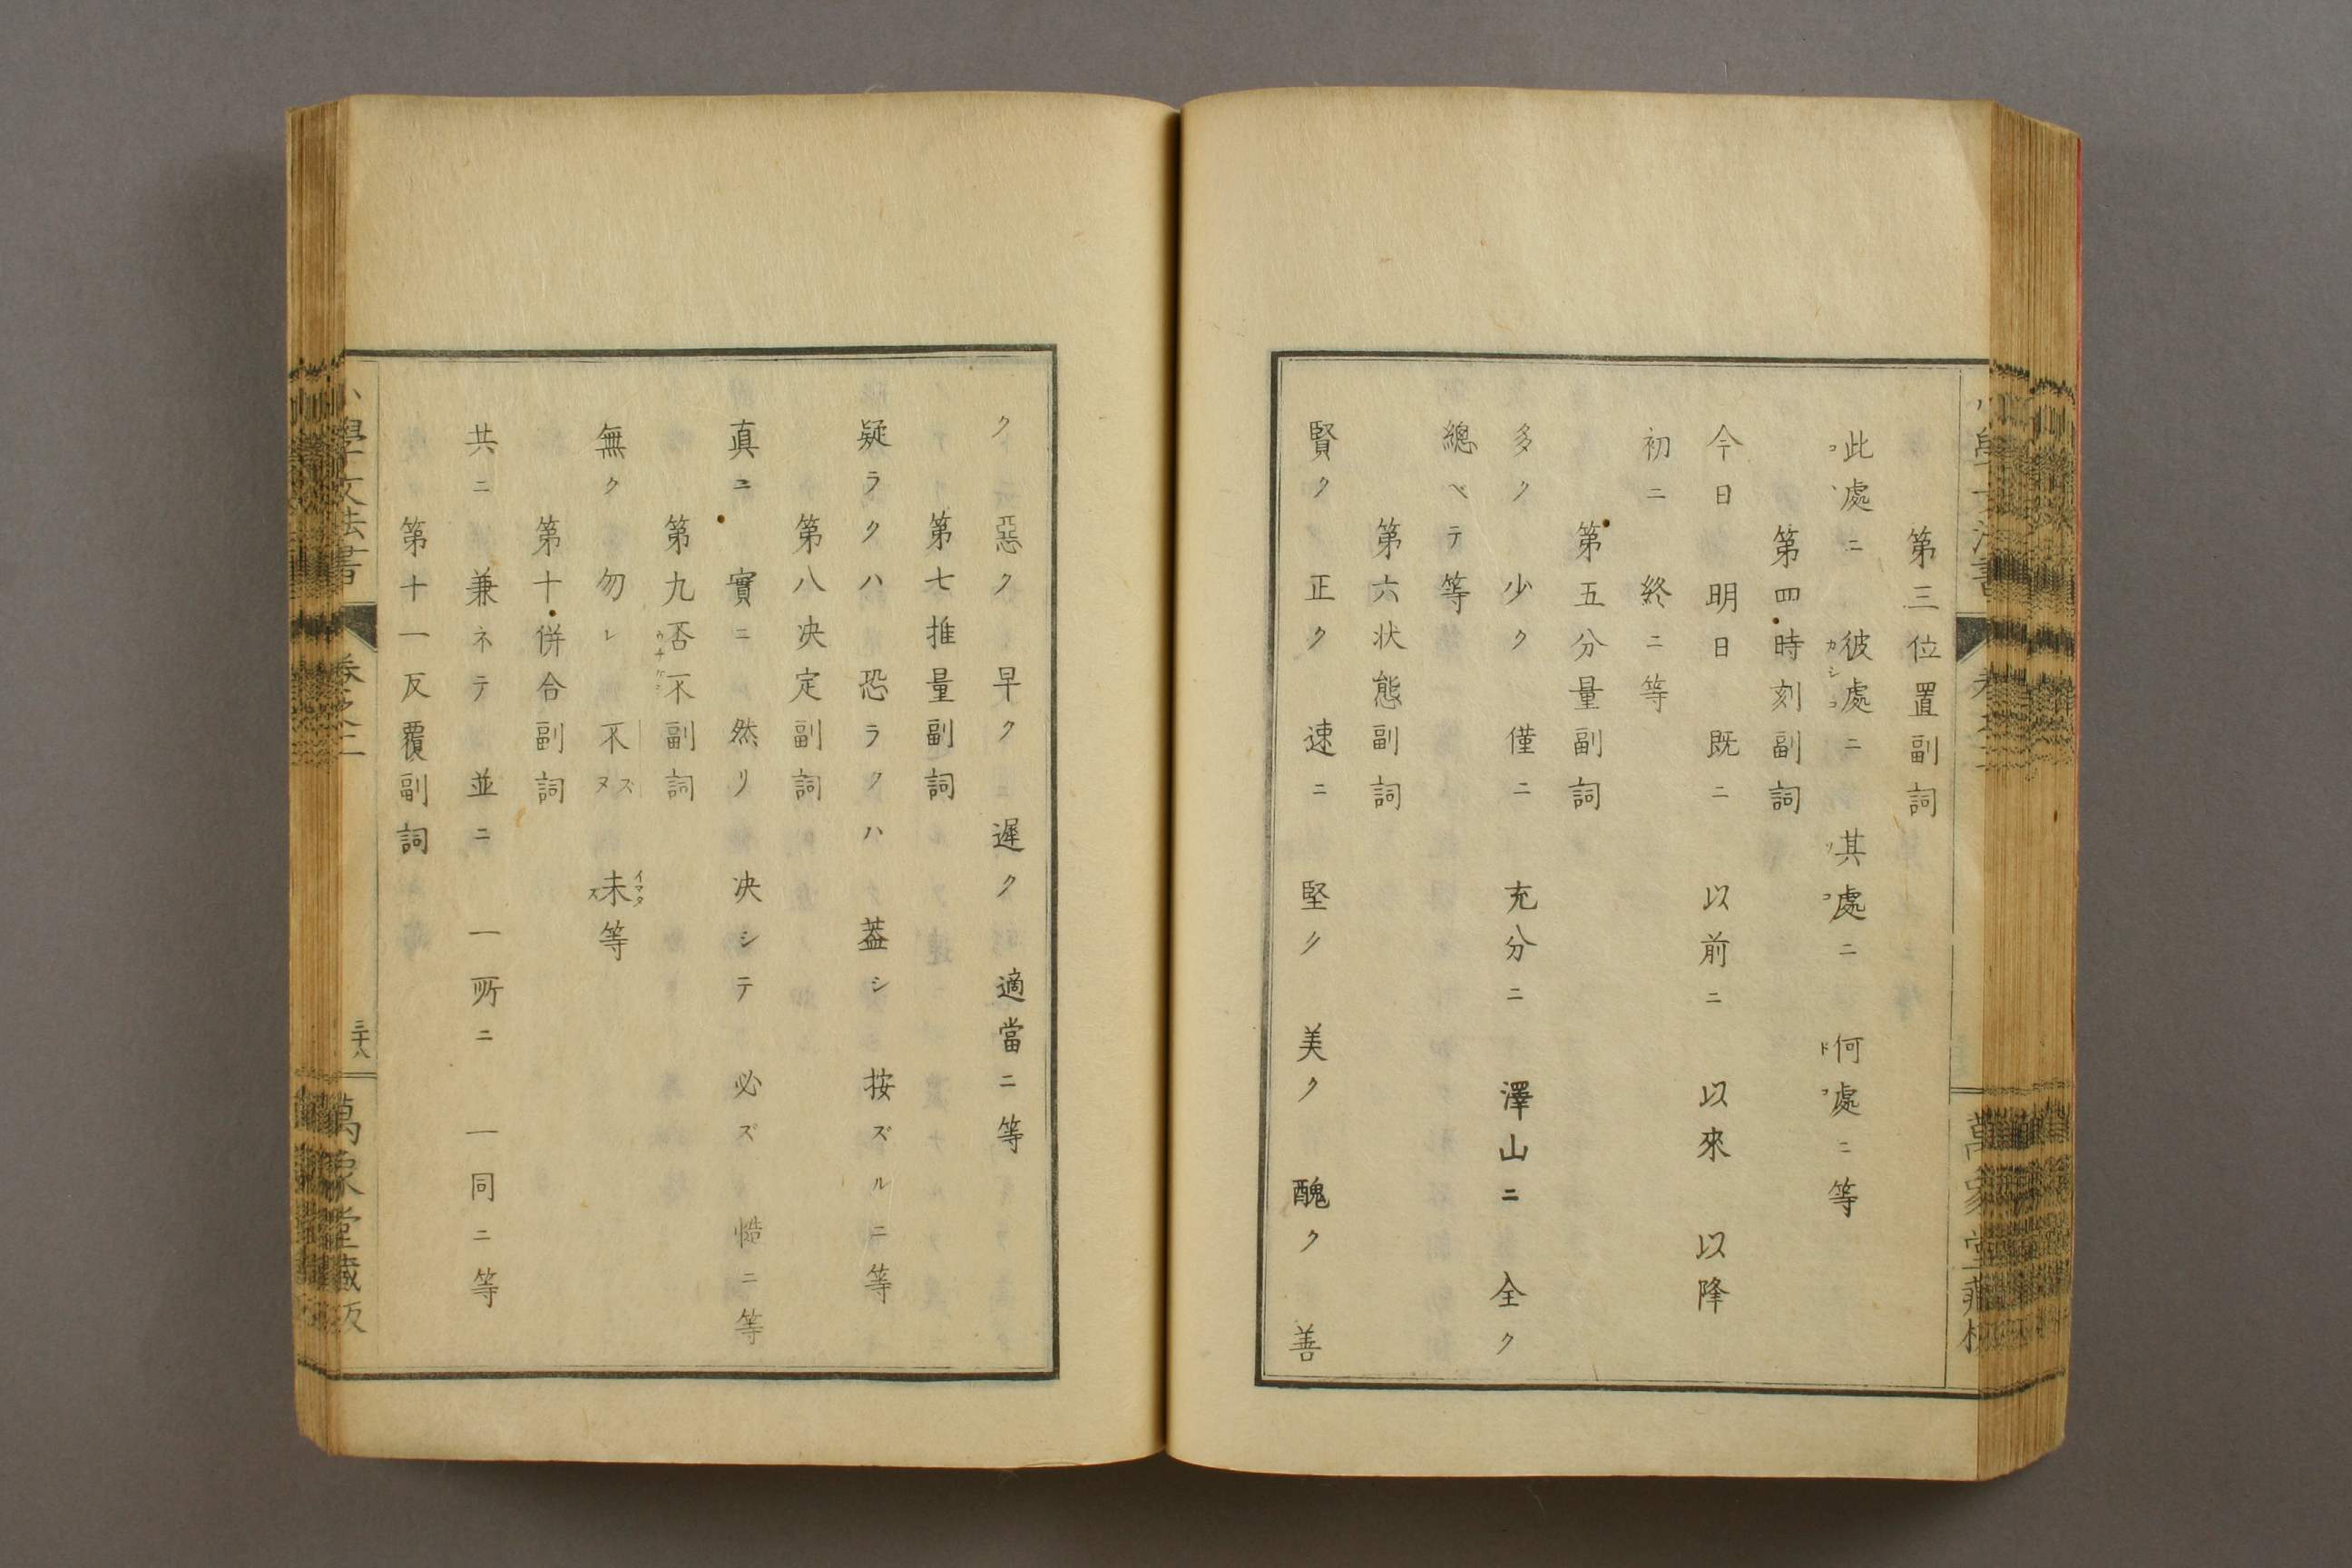 第三位置副詞
此處ニ 彼處ニ 其處ニ 何處ニ等
第四時刻副詞
今日 明日 既ニ 以前ニ 以來 以降
初ニ 終ニ等
第五分量副詞
多ク 少ク 僅ニ 充分ニ 澤山ニ 全ク
總ベテ等
第六状態副詞
賢ク 正ク 速ニ 堅ク 美ク 醜ク 善
ク 惡ク 早ク 遲ク 適當ニ等
第七推量副詞
疑ラクハ 恐ラクハ 蓋シ 按ズルニ等
第八决定副詞
真ニ 實ニ 然リ 决シテ 必ズ 慥ニ等
第九否不副詞
無ク 勿レ 不ズヌ 未イマダズ等
第十併合副詞
共ニ 兼ネテ 並ニ 一所ニ 一同ニ等
第十一反覆副詞
小學文法書 卷之二 三十八 萬象堂藏版